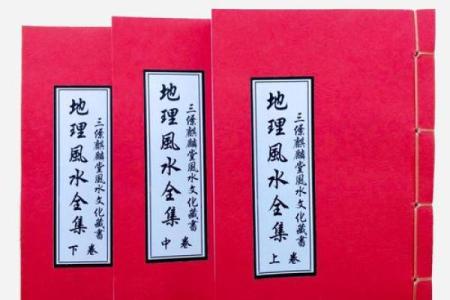 三僚麒麟堂風水文化藏書
地理風水全集
上卷
三僚麒麟堂風水文化藏書
地理風水全集
中卷
三僚麒麟堂風水文化藏書
地理風水全集
下卷